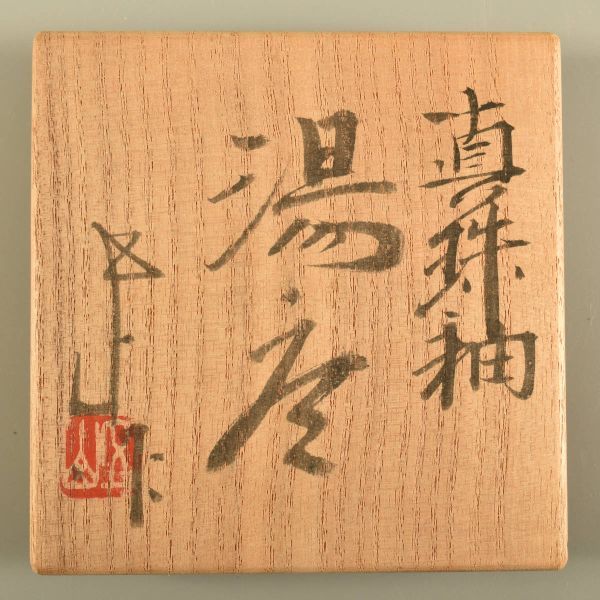 真珠釉
湯呑
作